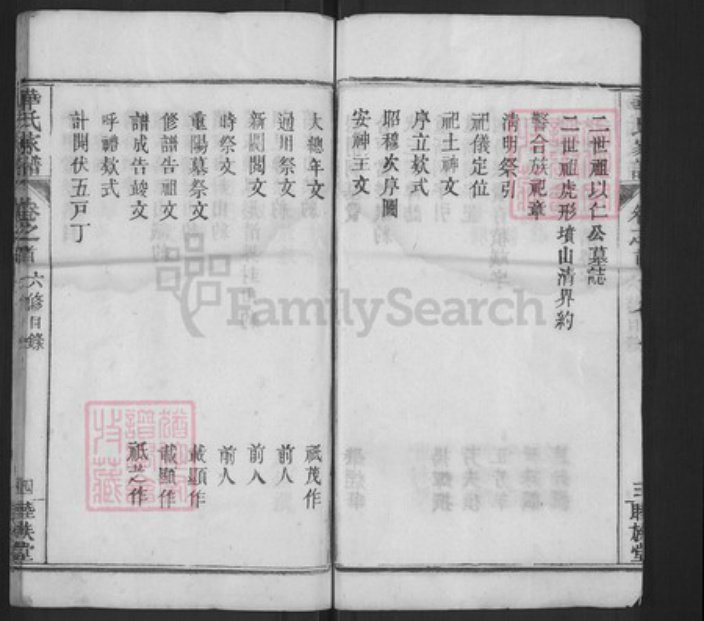 二世祖以仁公墓誌
二世祖虎形墳山清界約
醫合族祀章
清明祭引
祀儀定位
祀土神文
序立欵式
昭穆次序圖
安神主文
三
睦族堂
大總年文 祇茂作
通用祭文 前人
新閣閱文 前人
時祭文 前人
重陽墓祭文 載顯作
修譜告祖文 載顯作
譜成告竣文 祇芝作
呼禮欵式
計開伏五戸丁
華氏家譜
卷之首
六修目錄
四
睦族堂
FamilySearch